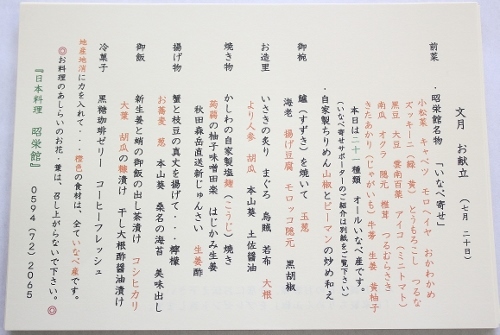 文月　お献立　（七月　二十日）
前菜　・昭栄館名物　「いなべ寄せ」
小松菜　キャベツ　モロヘイヤ　おかわかめ
ズッキーニ（緑　黄）　とうもろこし　つるな
黒豆　大豆　雲南百菜　アイコ（ミニトマト）
南瓜　オクラ　隠元　椎茸　つるむらさき
きたあかり（じゃがいも）牛蒡　生姜　黄柚子
本日は二十一種類　オールいなべ産です。
（いなべ寄せサポーターのご紹介は別紙をご覧下さい）
・自家製ちりめん山椒とピーマンの炒め和え
御椀　鱸（すずき）を焼いて　玉葱
海老　揚げ豆腐　モロッコ隠元　黒胡椒
お造里　いさきの炙り　まぐろ　烏賊　若布　大根
より人参　胡瓜　本山葵　土佐醤油
焼き物　かしわの自家製塩麹（こうじ）焼き
蒟蒻の柚子味噌田楽　はじかみ生姜
秋田森岳直送新じゅんさい　生姜酢
揚げ物　蟹と枝豆の真丈を揚げて・・・檸檬
お蕎麦　葱　本山葵　桑名の海苔　美味出し
御飯　新生姜と蛸の御飯の出し茶漬け　コシヒカリ
大葉　胡瓜の糠漬け　干し大根酢醤油漬け
冷菓子　黒糖珈琲ゼリー　コーヒーフレッシュ
地産地消に力を入れて・・・橙色の食材は、全ていなべ産です。
◎お料理のあしらいのお花・葉は、召し上がらないで下さい。◎
『日本料理　昭栄館』　0594（72）2065